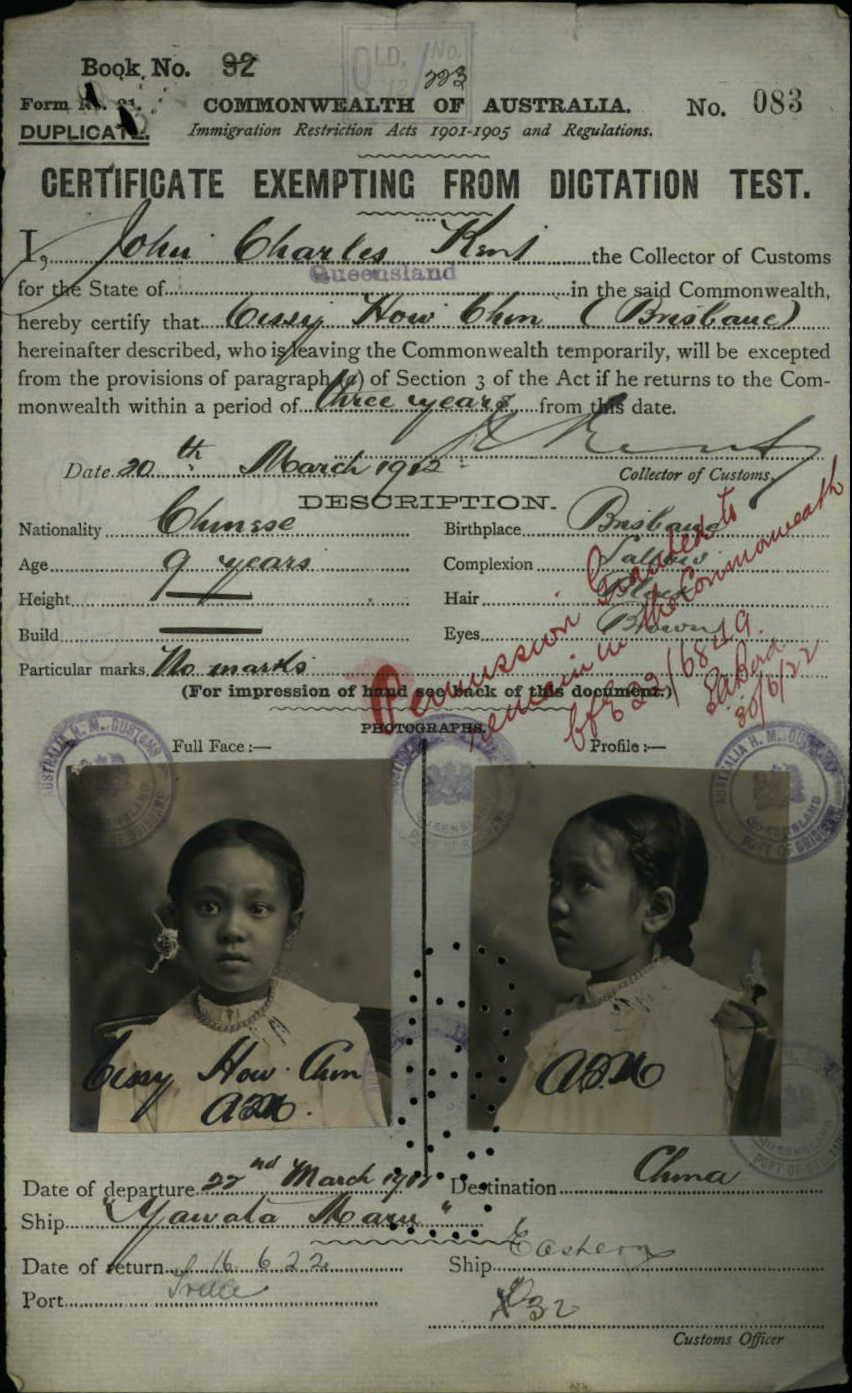 QLD. No.
Book No. 92
223
Form
COMMONWEALTH OF AUSTRALIA. No. 083
DUPLICATE.
Immigration Restriction Acts 1901-1905 and Regulations.
CERTIFICATE EXEMPTING FROM DICTATION TEST.
I, John Charles Kent the Collector of Customs
for the State of Queensland in the said Commonwealth,
hereby certify that Cissy How Chin (Brisbane)
hereinafter described, who is leaving the Commonwealth temporarily, will be excepted
from the provisions of paragraph (a) of Section 3 of the Act if he returns to the Com-
monwealth within a period of three years from this date.
Date 20th March 1912
Collector of Customs.
DESCRIPTION.
Nationality Chinese
Birthplace Brisbane
Age 9 years
Complexion Sallow
Height
Hair Black
Build
Eyes Brown
Particular marks No marks
Permission Granted to
remain in the Commonwealth
22/6849
30/6/22
(For impression of hand see back of this document.)
PHOTOGRAPHS.
Full Face:—
Profile:—
AUSTRALIA H. M. CUSTOMS
QUEENSLAND
PORT OF BRISBANE
Cissy How Chin
Date of departure 22nd March 191
Destination China
Ship "Yawata Maru"
Date of return 16 6 22
Ship Eastern
Port
Customs Officer